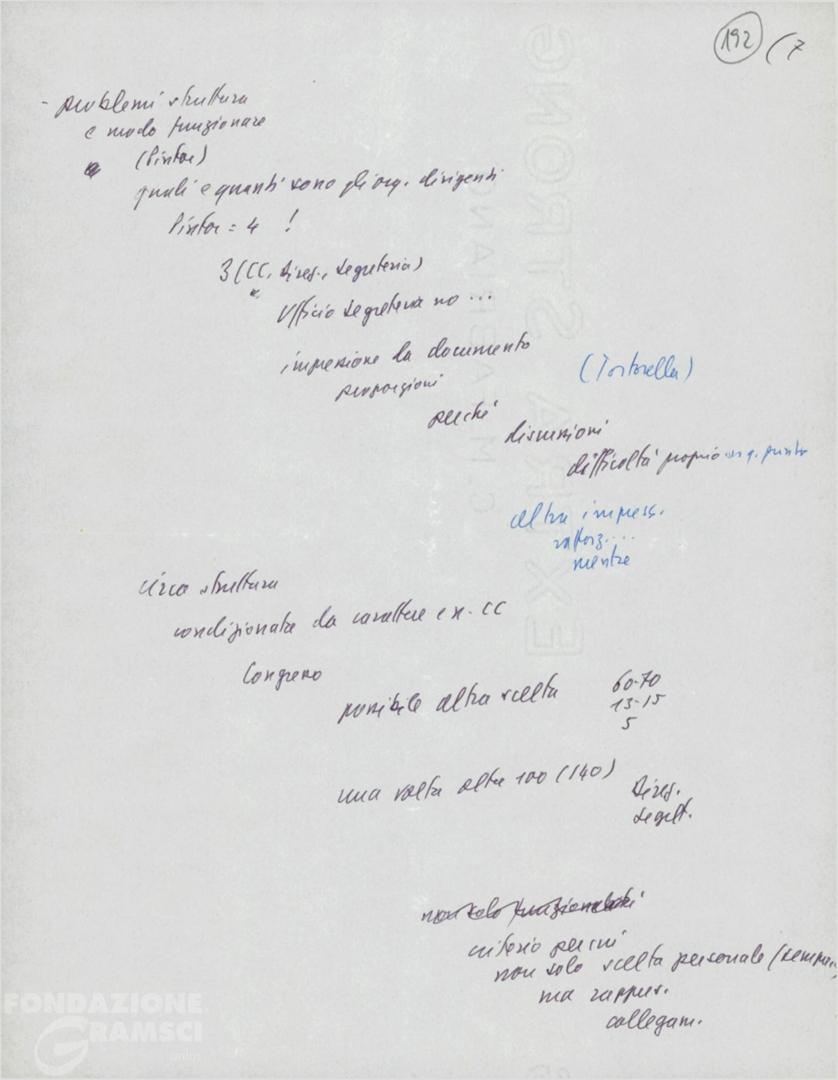 192 (7
- problemi struttura
e modo funzionare
(Pintor)
quali e quanti sono gli org. dirigenti
Pintor = 4 !
3 (CC, Direz., Segreteria)
Ufficio Segreteria no ...
impressione da documento
(Tortorella)
proporzioni
perché
discussioni
difficoltà proprio
altra impress.
rafforz....
mentre
circa struttura
condizionata da carattere ex-CC
Congresso
possibile altra scelta 60-70
13-15
5
una volta oltre 100 (140) Direz.
Segret.
non solo funzionalità
criterio per cui
non solo scelta personale (sempre,
ma rappres.
collegam.
FONDAZIONE
GRAMSCI
onlus
EXTRA STRONG